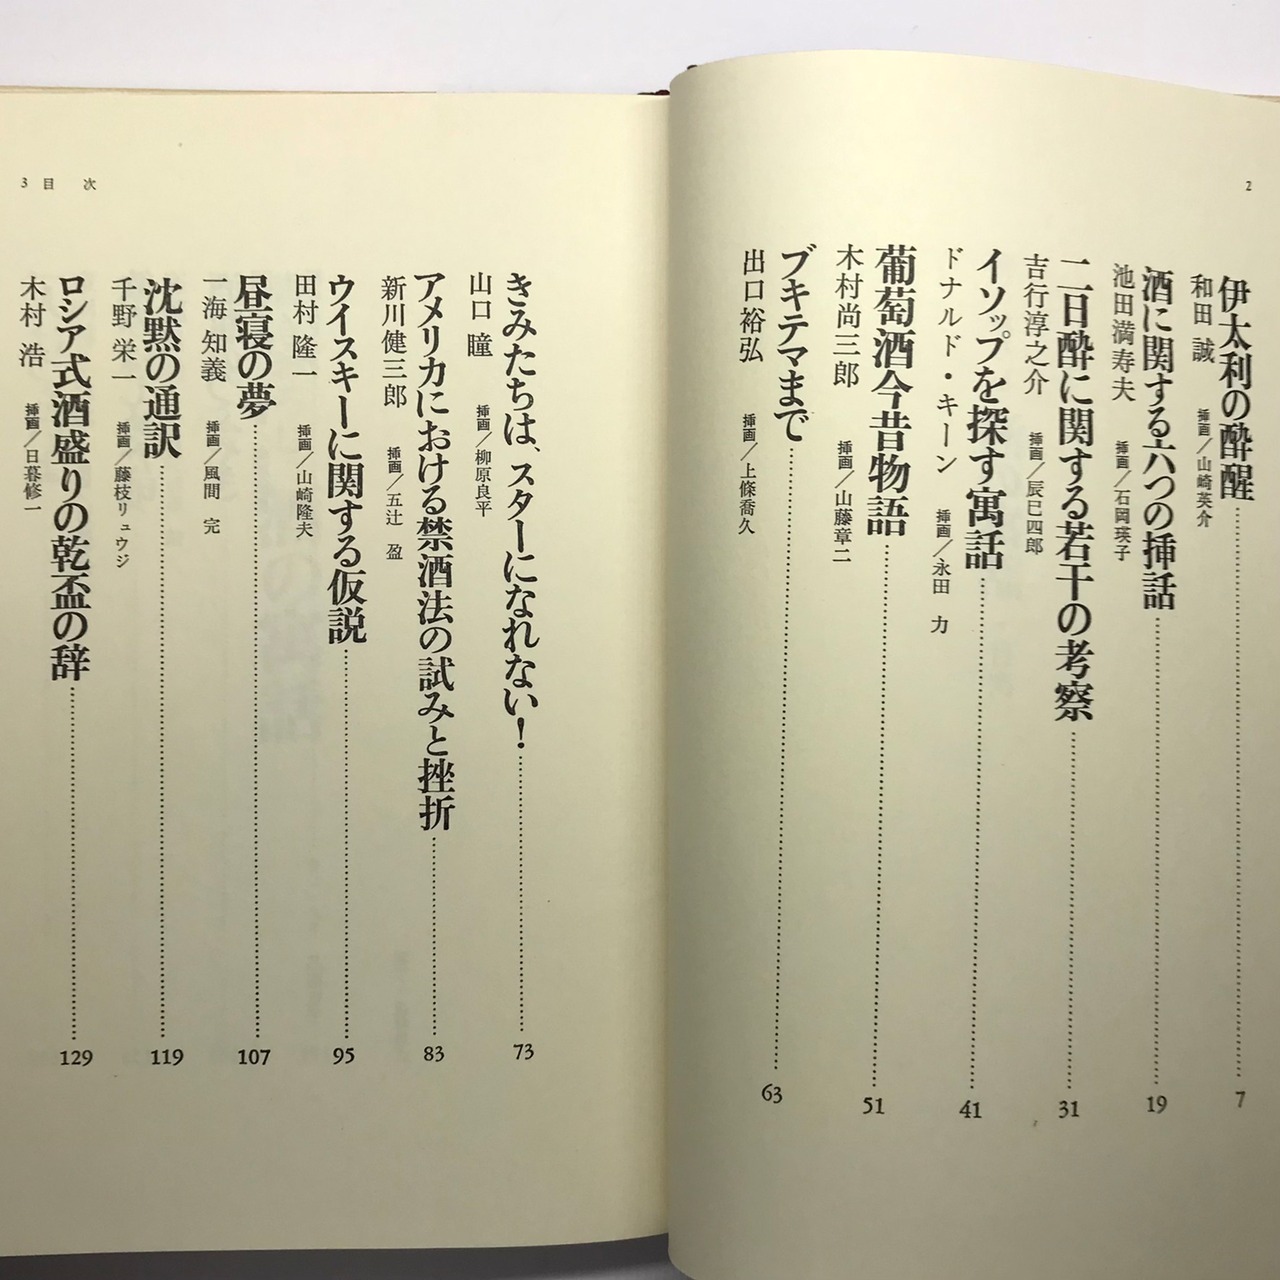 2
伊太利の酔醒 7
和田 誠 挿画／山崎英介
酒に関する六つの挿話 19
池田満寿夫 挿画／石岡瑛子
二日酔に関する若干の考察 31
吉行淳之介 挿画／辰巳四郎
イソップを探す寓話 41
ドナルド・キーン 挿画／永田 力
葡萄酒今昔物語 51
木村尚三郎 挿画／山藤章二
ブキテマまで 63
出口裕弘 挿画／上條喬久
3 目 次
きみたちは、スターになれない! 73
山口 瞳 挿画／柳原良平
アメリカにおける禁酒法の試みと挫折 83
新川健三郎 挿画／五辻 盈
ウイスキーに関する仮説 95
田村 隆一 挿画／山崎隆夫
昼寝の夢 107
一海 知義 挿画／風間 完
沈黙の通訳 119
千野 栄一 挿画／藤枝リュウジ
ロシア式酒盛りの乾盃の辞 129
木村 浩 挿画／日暮修一